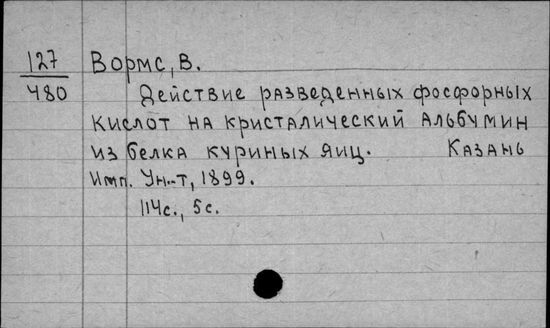 127 Вормс, В.
480 Действие разведенных фосфорных
кислот на кристалический альбумин
из белка куриных яиц. Казань
Имп. Ун-т, 1899.
114с., 5с.